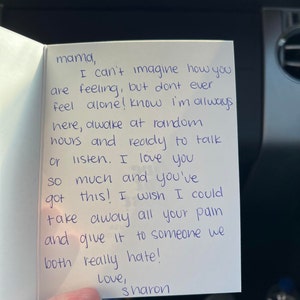 mama,
I can't imagine how you
are feeling, but dont ever
feel alone! know I'm always
here, awake at random
hours and ready to talk
or listen. I love you
so much and you've
got this! I wish I could
take away all your pain
and give it to someone we
both really hate!
Love,
Sharon